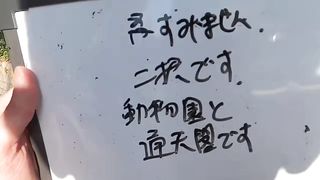 すみません。
二択です。
動物園と
通天閣です